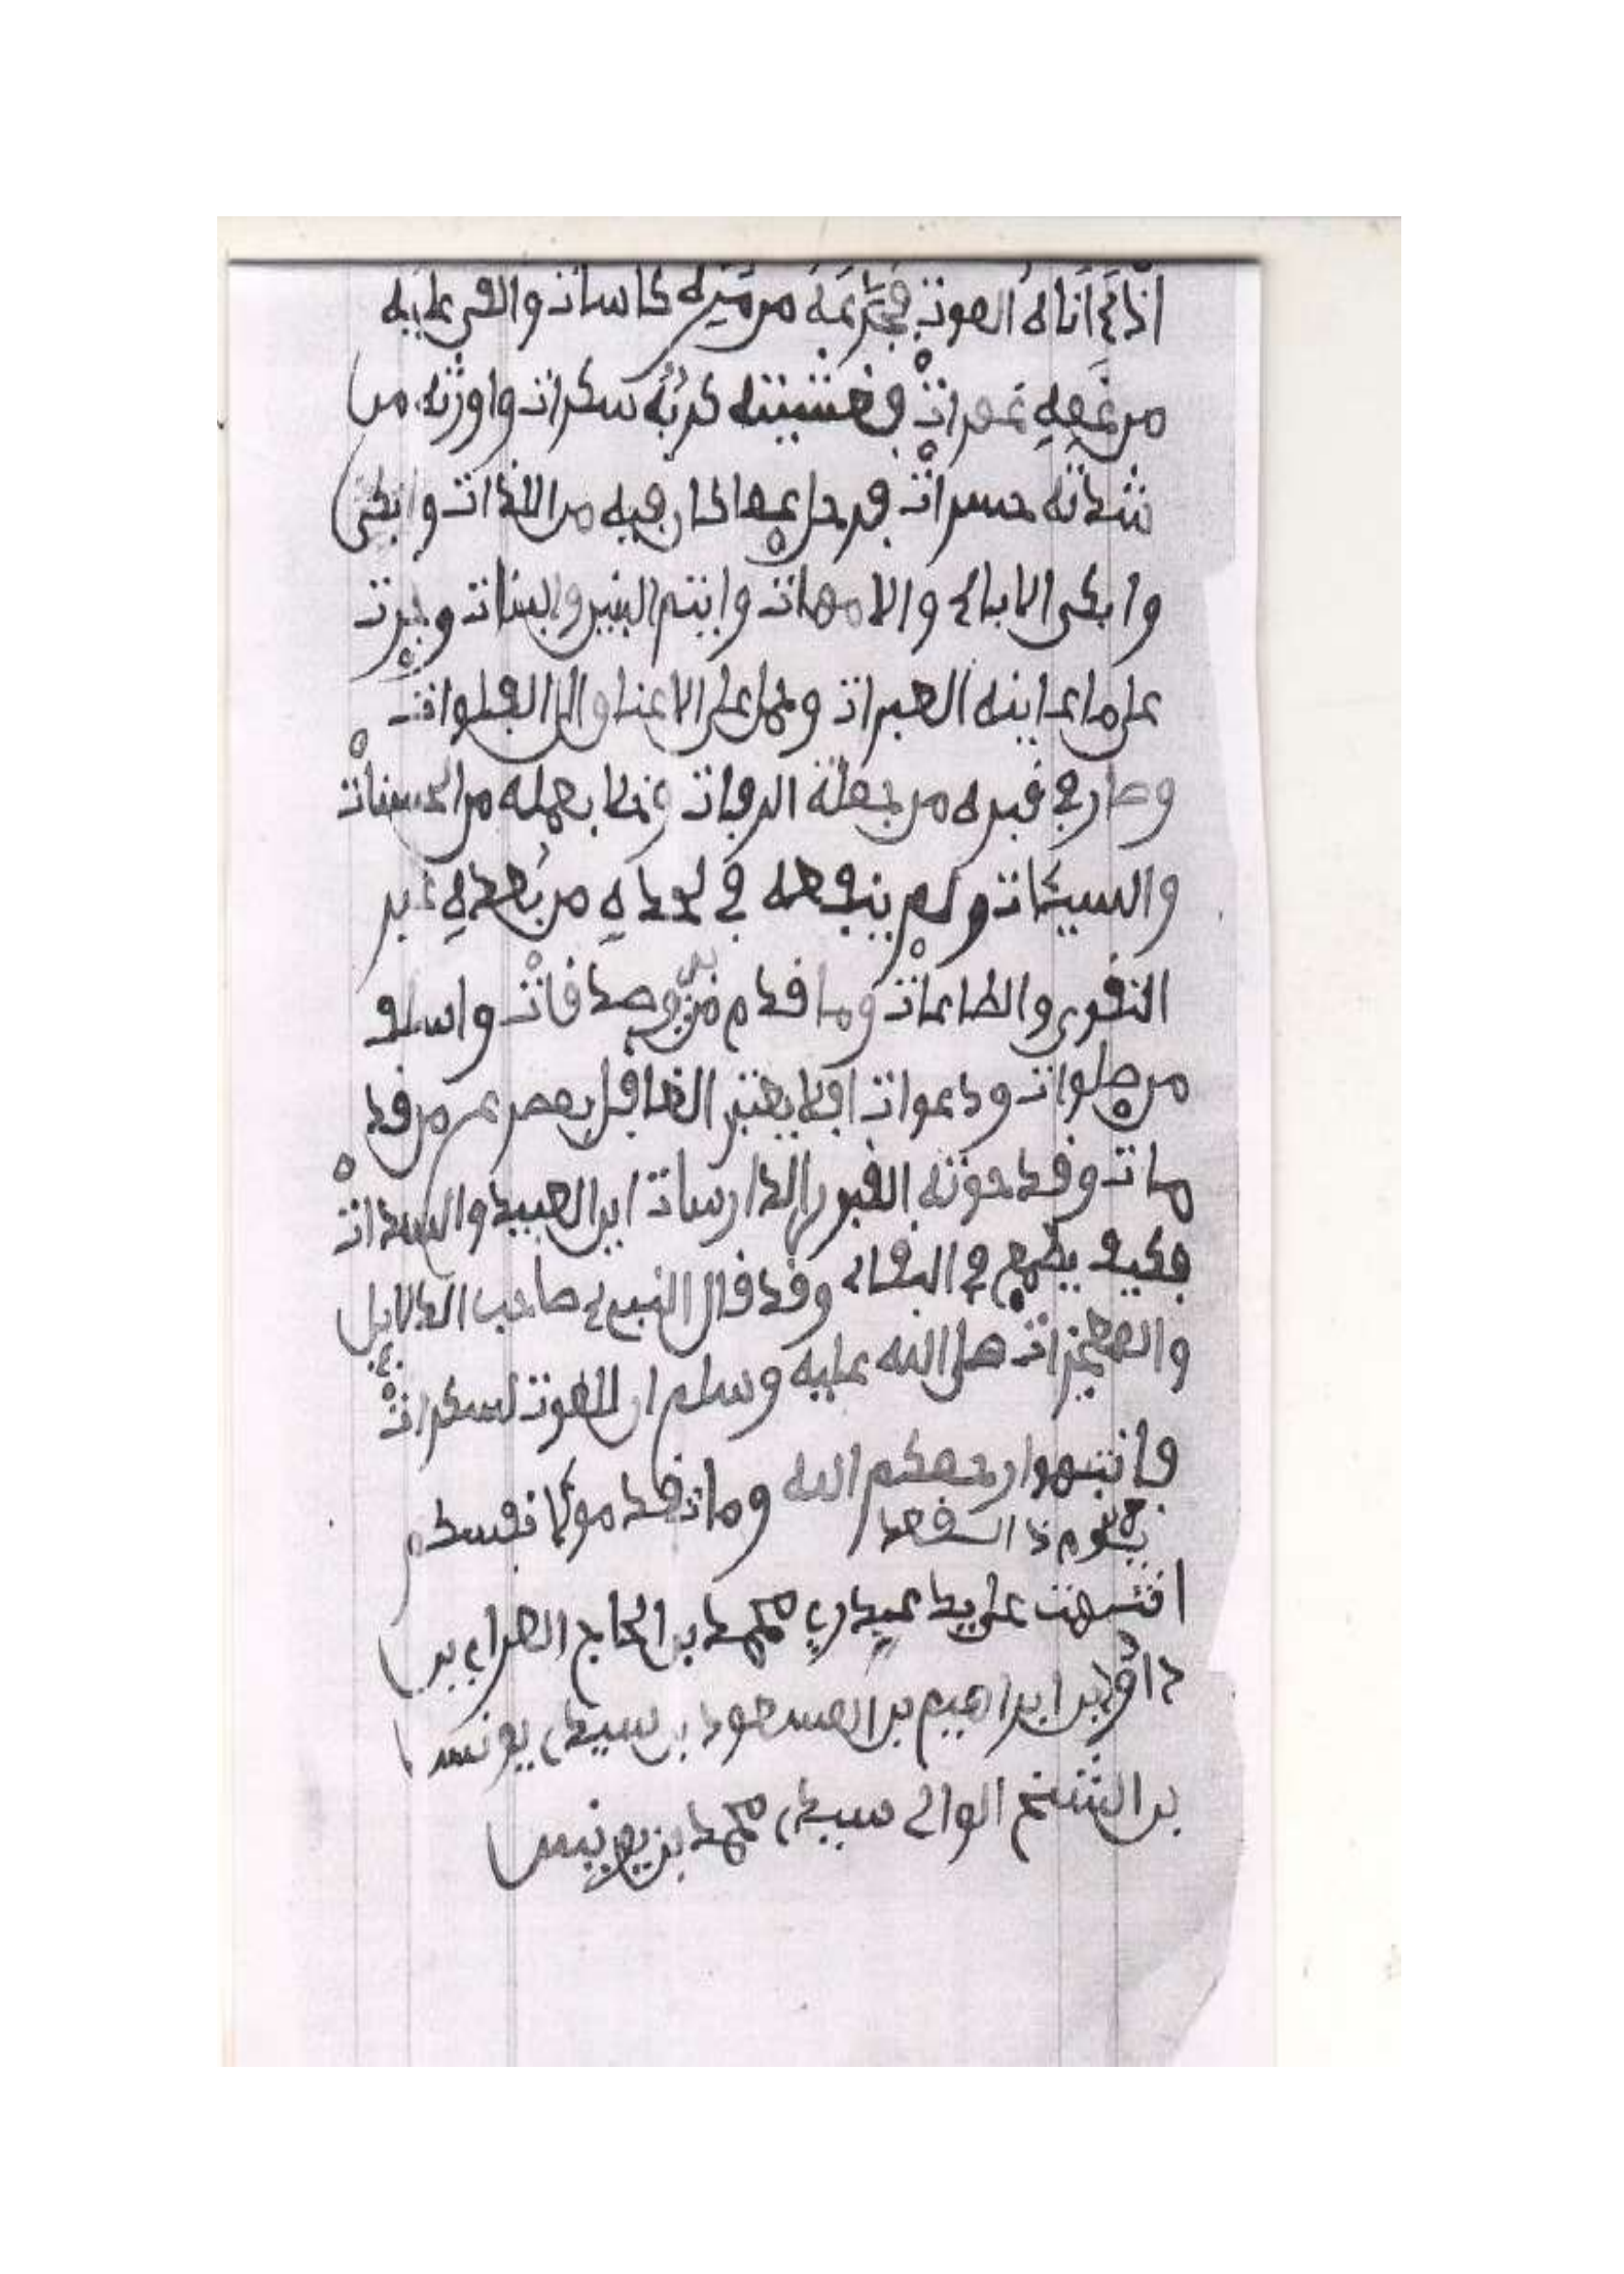 اذا اتاه الموت فجرعه من مره كاسات والقى عليه
من غمه غمرات فغشيته كربه سكرات واورثه من
شدته حسرات فرحل عما كان فيه من اللذات وابكى
وابكى الاباء والامهات وايتم البنين والبنات وجرت
على ما عاينه العبرات وحمل على الاعناق الى الفلوات
وصار في قبره من جملة الرفات بعمله من الحسنات
والسيئات ولم ينفعه في لحده من بعده غير
التقوى والطاعات وما قدم من وصدقات واسلف
من صلوات ودعوات افلا يعتبر الغافل بمصرع من قد
مات وقد حوته القبور الدارسات اين العبيد والسدات
فكيف يطمع في البقاء وقد قال النبيء صاحب الدلايل
والمعجزات صلى الله عليه وسلم ان للموت لسكرات
فانتبهوا رحمكم الله
انتهت على يد عبيد ربه محمد بن الحاج العرابي بن
بن ابراهيم بن المسعود بن سيدي يونس
بن الشيخ الوالي سيدي محمد بن يونس